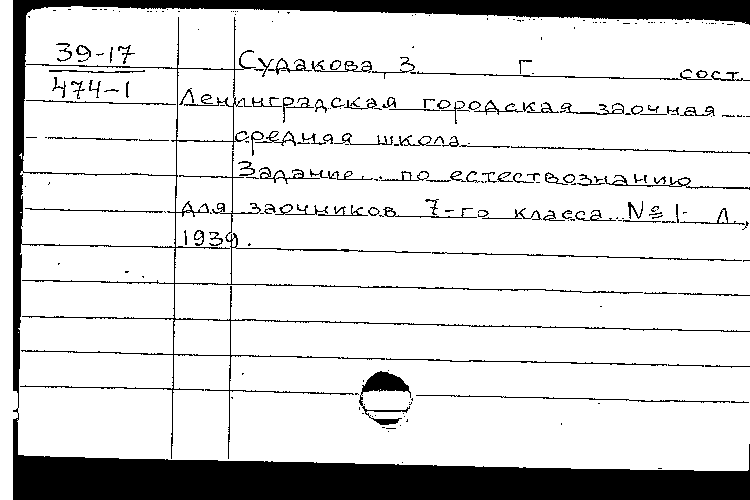 39-17
474-1
Судакова, З. Г. сост.
Ленинградская городская заочная
средняя школа.
Задание... по естествознанию
для заочников 7-го класса. № 1. Л.,
1939.